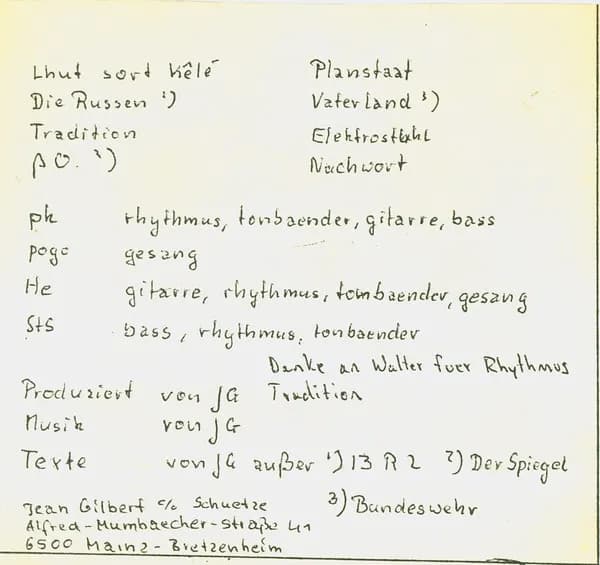 Lhut sort kêlé
Die Russen ¹)
Tradition
β O. ²)
Planstaat
Vaterland ³)
Elektrostuhl
Nachwort
pk rhythmus, tonbaender, gitarre, bass
pogo gesang
He gitarre, rhythmus, tombaender, gesang
StS bass, rhythmus, tonbaender
Danke an Walter fuer Rhythmus
Produziert von JG Tradition
Musik von JG
Texte von JG außer ¹) 13 R 2 ²) Der Spiegel
³) Bundeswehr
Jean Gilbert c/o Schuetze
Alfred-Mumbaecher-Straße 41
6500 Mainz-Bretzenheim